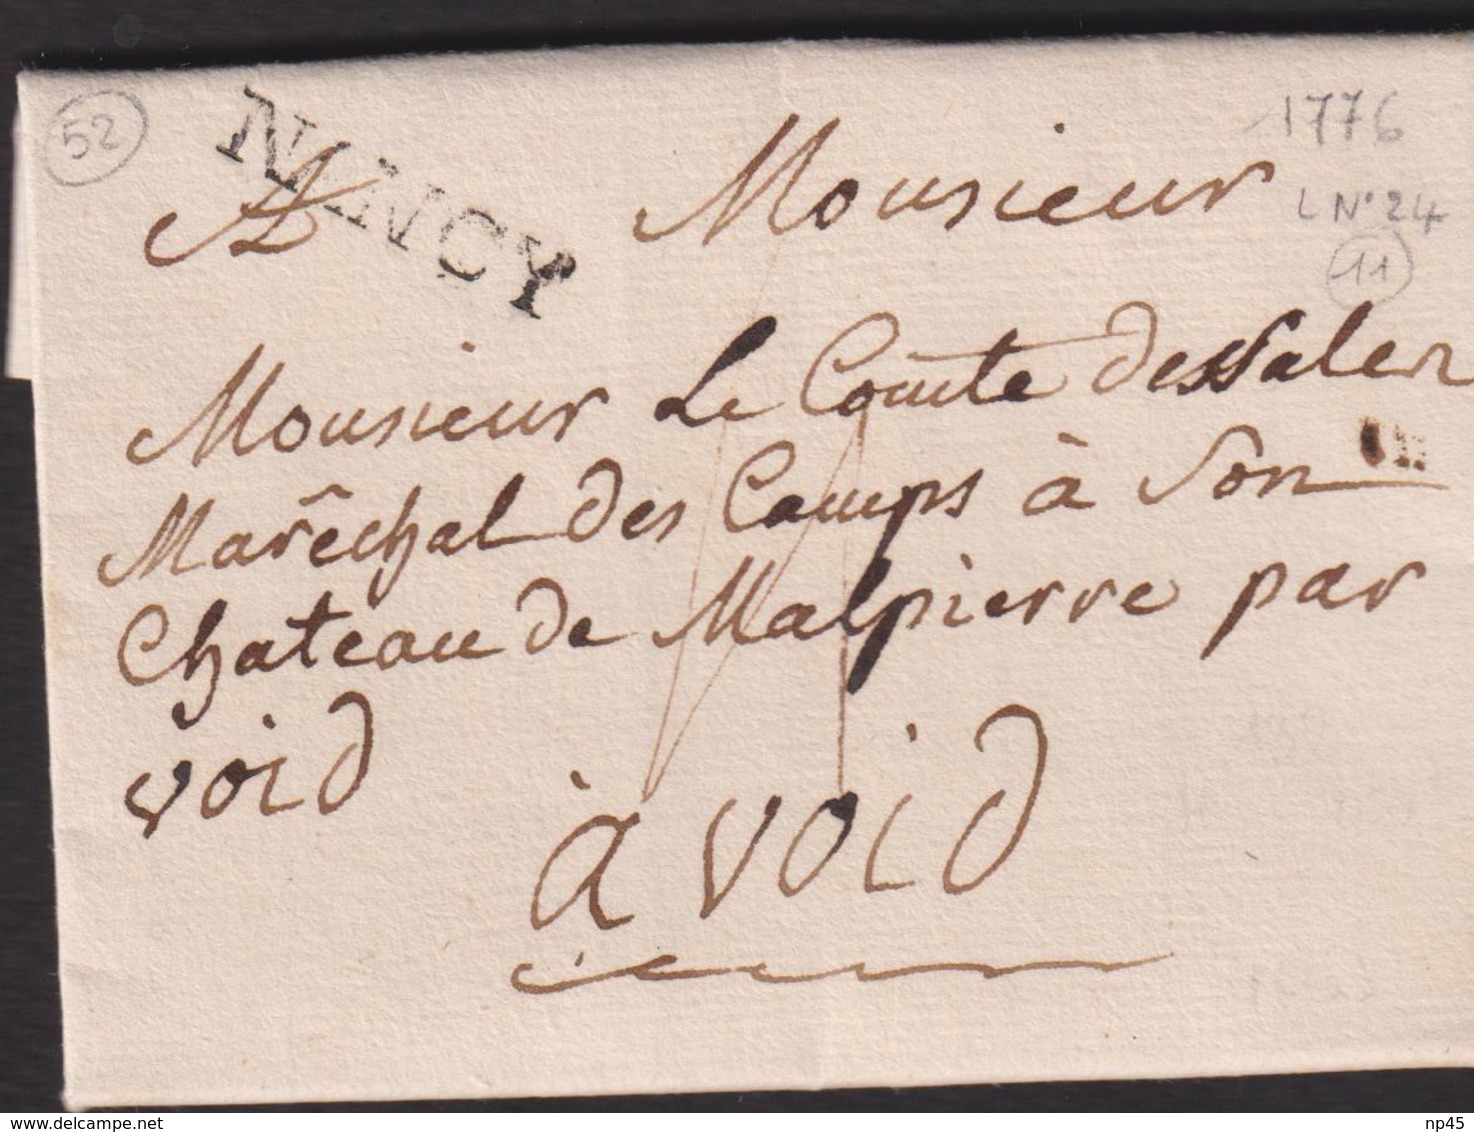 52
NANCY
1776
L N° 24
11
A Monsieur
Monsieur Le Comte dessalen
Marêchal des Camps à Son
Chateau de Malpierre par
void
à void
delcampe.net
np45